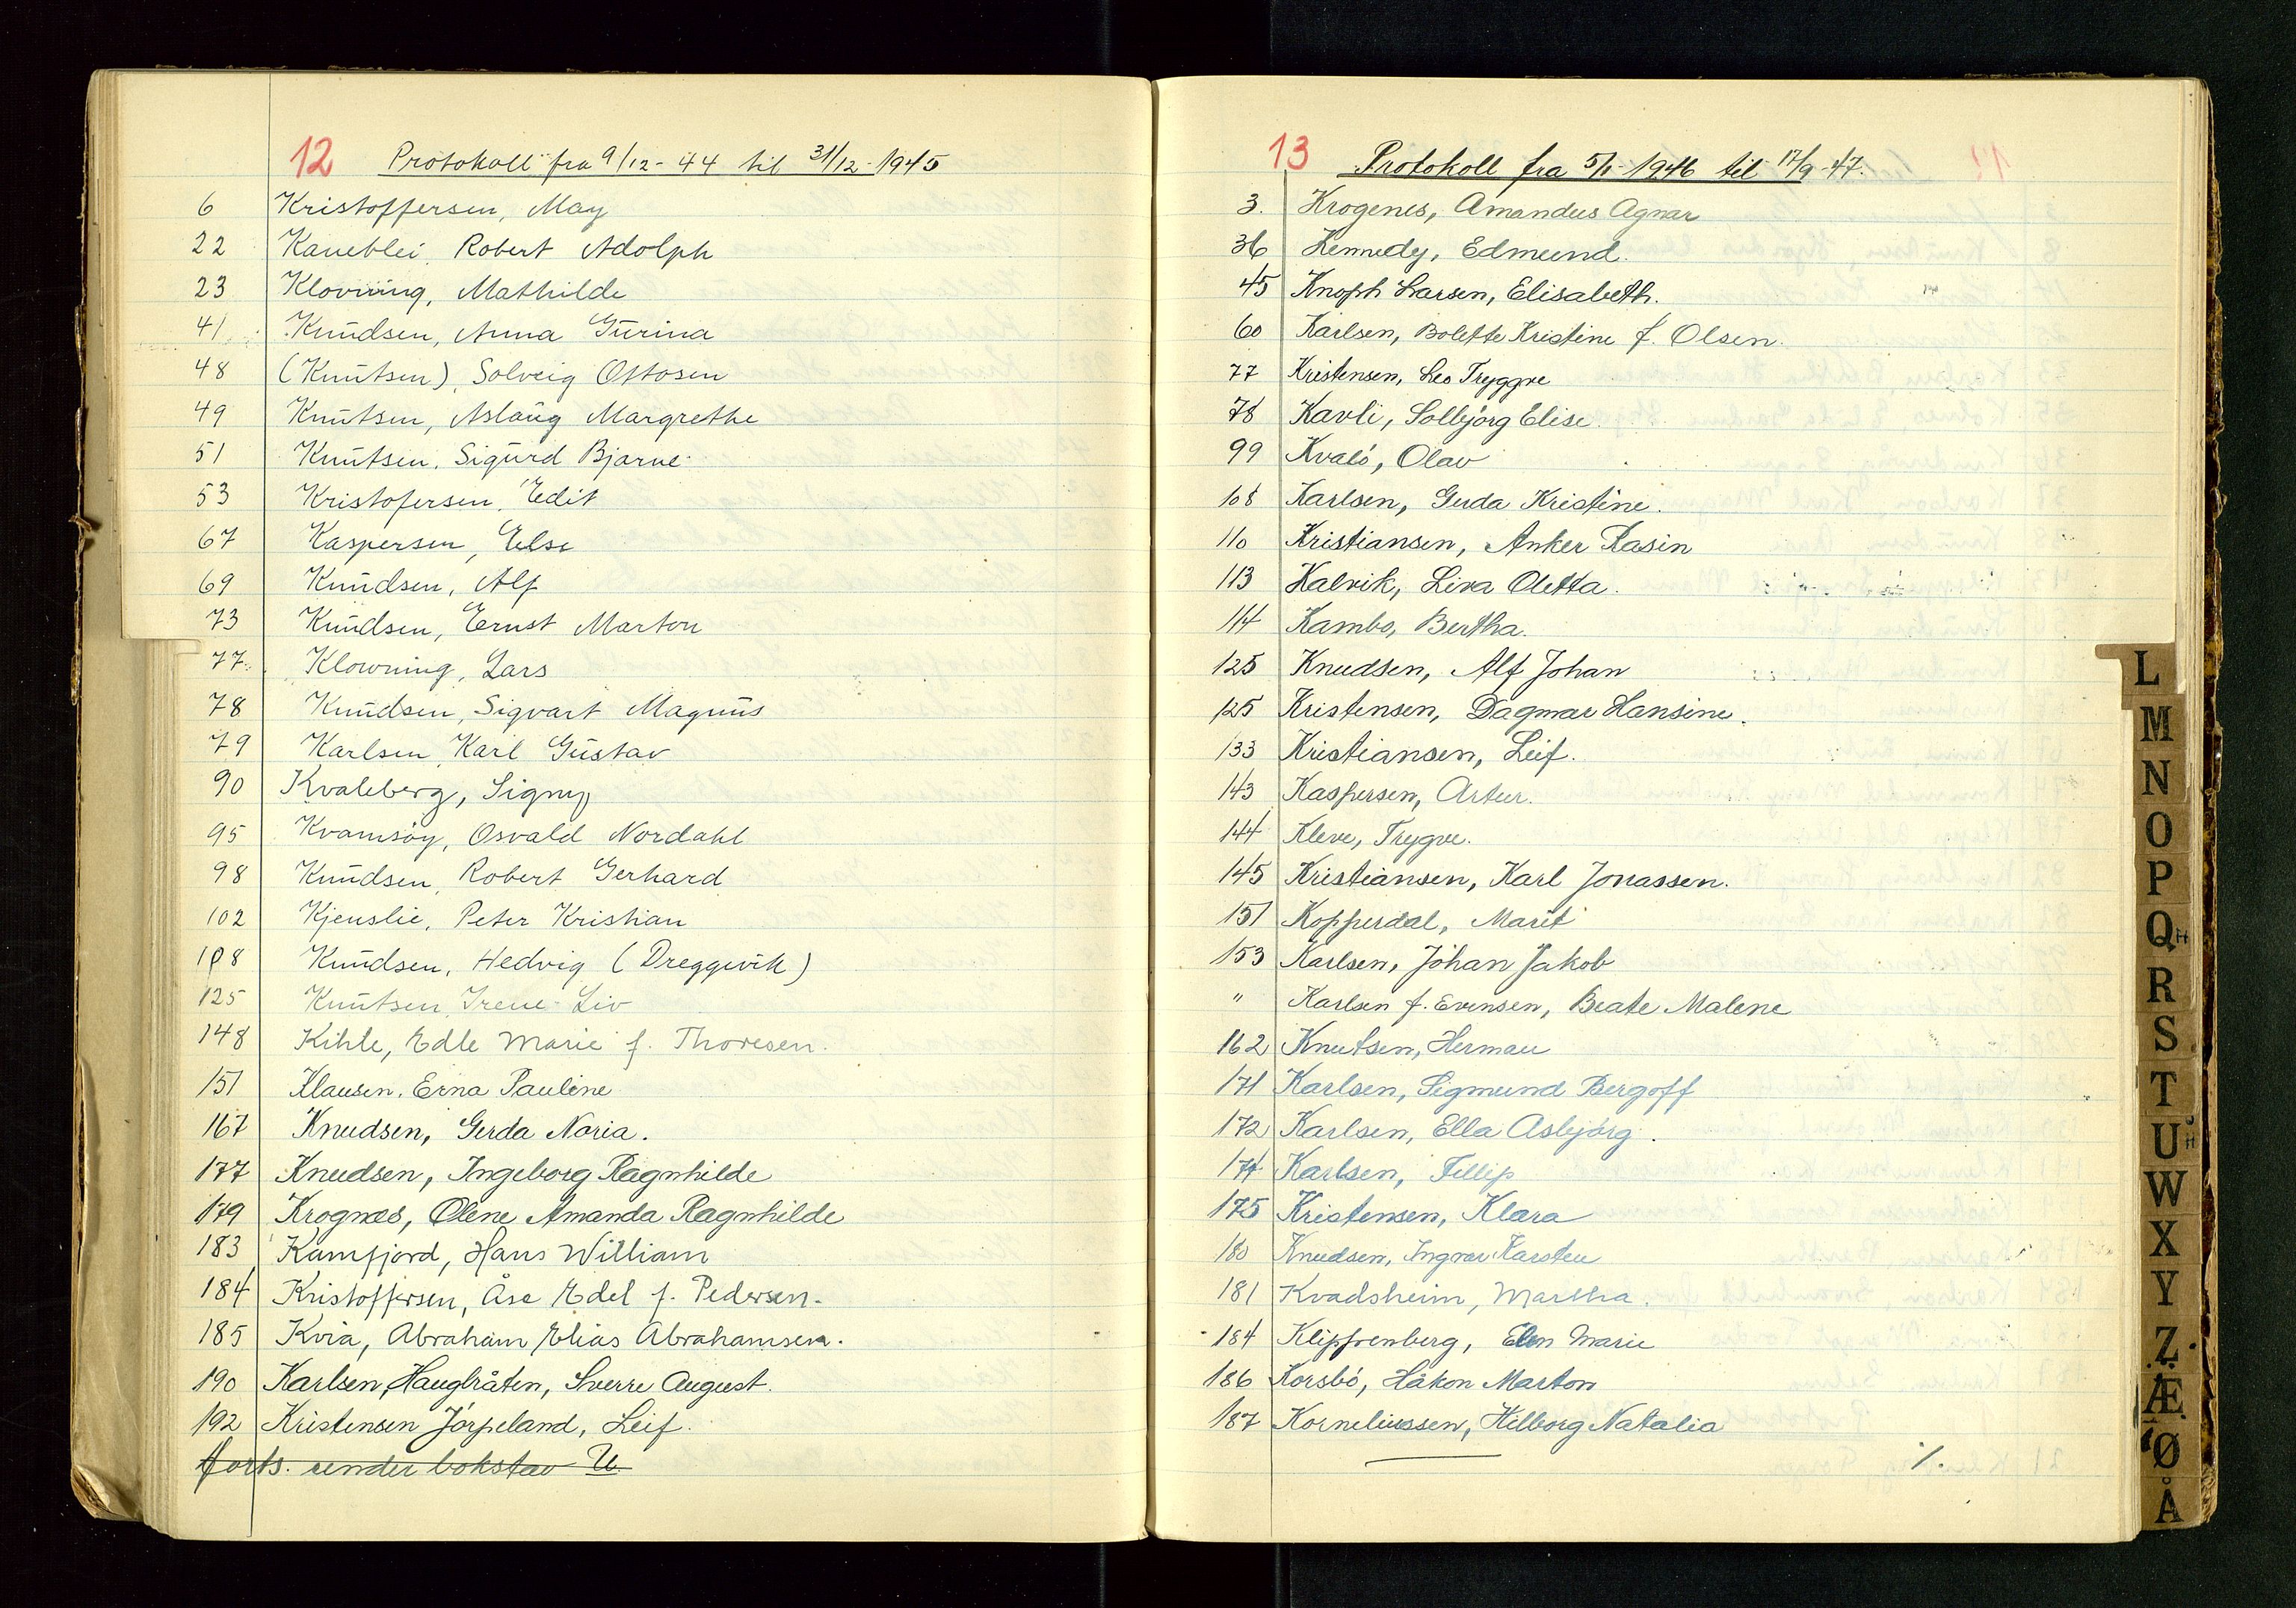 12 Protokoll fra 9/12-44 til 31/12-1945
6 Kristoffersen, May
22 Kaueblei, Robert Adolph
23 Klovning, Mathilde
41 Knudsen, Anna Gurina
48 (Knutsen), Solveig Ottosen
49 Knutsen, Aslaug Margrethe
51 Knutsen, Sigurd Bjarne
53 Kristofersen, Edit
67 Kaspersen, Else
69 Knudsen, Alf
73 Knudsen, Ernst Marton
77 Klowning, Lars
78 Knudsen, Sigvart Magnus
79 Karlsen, Karl Gustav
90 Kvaleberg, Signy
95 Kvamsøy, Osvald Nordahl
98 Knudsen, Robert Gerhard
102 Kjenslie, Peter Kristian
108 Knudsen, Hedvig (Dreggevik)
125 Knutsen, Irene Liv
148 Kihle, Edle Marie f. Thoresen.
151 Klausen, Erna Pauline
167 Knudsen, Gerda Noria.
177 Knudsen, Ingeborg Ragnhilde
179 Krognæs, Olene Amanda Ragnhilde
183 Kamfjord, Hans William
184 Kristoffersen, Åse Edel f. Pedersen.
185 Kvia, Abraham Elias Abrahamsen.
190 Karlsen, Haugbråten, Sverre August.
192 Kristensen Jørpeland, Leif.
forts. under bokstav U.
13 Protokoll fra 5/1-1946 til 17/9-47.
3. Krogenes, Amandus Agnar
36 Kennedy, Edmund.
45 Knoph Larsen, Elisabeth.
60 Karlsen, Bolette Kristine f. Olsen.
77 Kristensen, Leo Tryggve
78 Kavli, Solbjørg Elise.
99 Kvalø, Olav
108 Karlsen, Gerda Kristine.
110 Kristiansen, Anker Kasin
113 Kalvik, Liva Oletta.
114 Kambo, Bertha.
125 Knudsen, Alf Johan
125 Kristensen, Dagmar Hansine.
133 Kristiansen, Leif.
143 Kaspersen, Artur.
144 Kleve, Trygve.
145 Kristiansen, Karl Jonassen.
151 Kopperdal, Marit
153 Karlsen, Johan Jakob
" Karlsen f. Evensen, Beate Malene
162 Knutsen, Herman
171 Karlsen, Sigmund Bergoff
172 Karlsen, Ella Asbjørg.
174 Karlsen, Fillip
175 Kristensen, Klara
180 Knudsen, Ingvar Karsten
181 Kvadsheim, Martha.
184 Klippenberg, Elen Marie
186 Korsbø, Håkon Marton
187 Korneliussen, Hilborg Natalia
./.
L
M
N
O
P
Q
R
S
T
U
W
X
Y
Z
Æ
Ø
Å